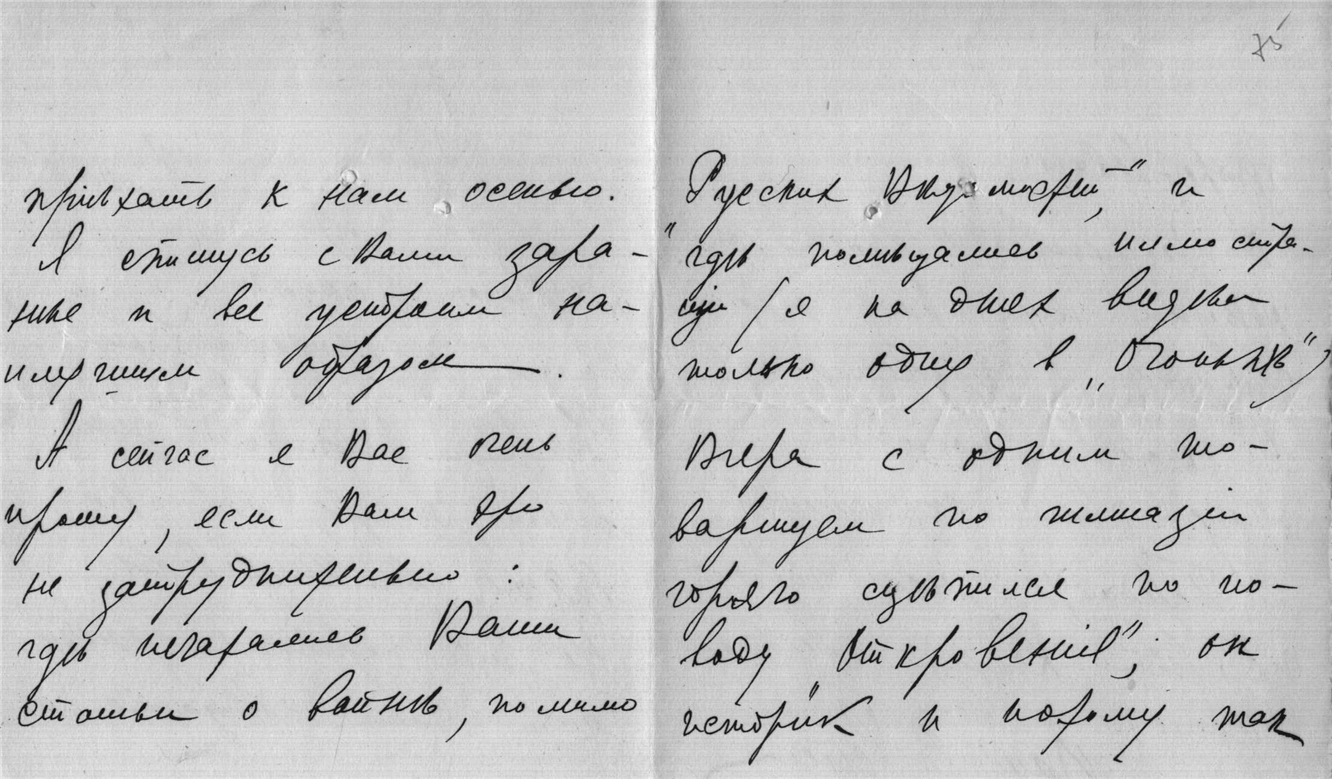 пріѣхать к нам осенью.
Я спишусь с Вами зара-
нѣе и все устроим на-
илучшим образом.
А сейчас я Вас очень
прошу, если Вам это
не затруднительно:
гдѣ печатались Ваши
статьи о войнѣ, помимо
75
"Русских Вѣдомостей", и
гдѣ помѣщались иллюстра-
ціи (я на днях видѣл
только одну в „Огонькѣ")
Вчера с одним то-
варищем по гимназіи
горячо сцѣпился по по-
воду "Откровенія"; он
историк и потому так